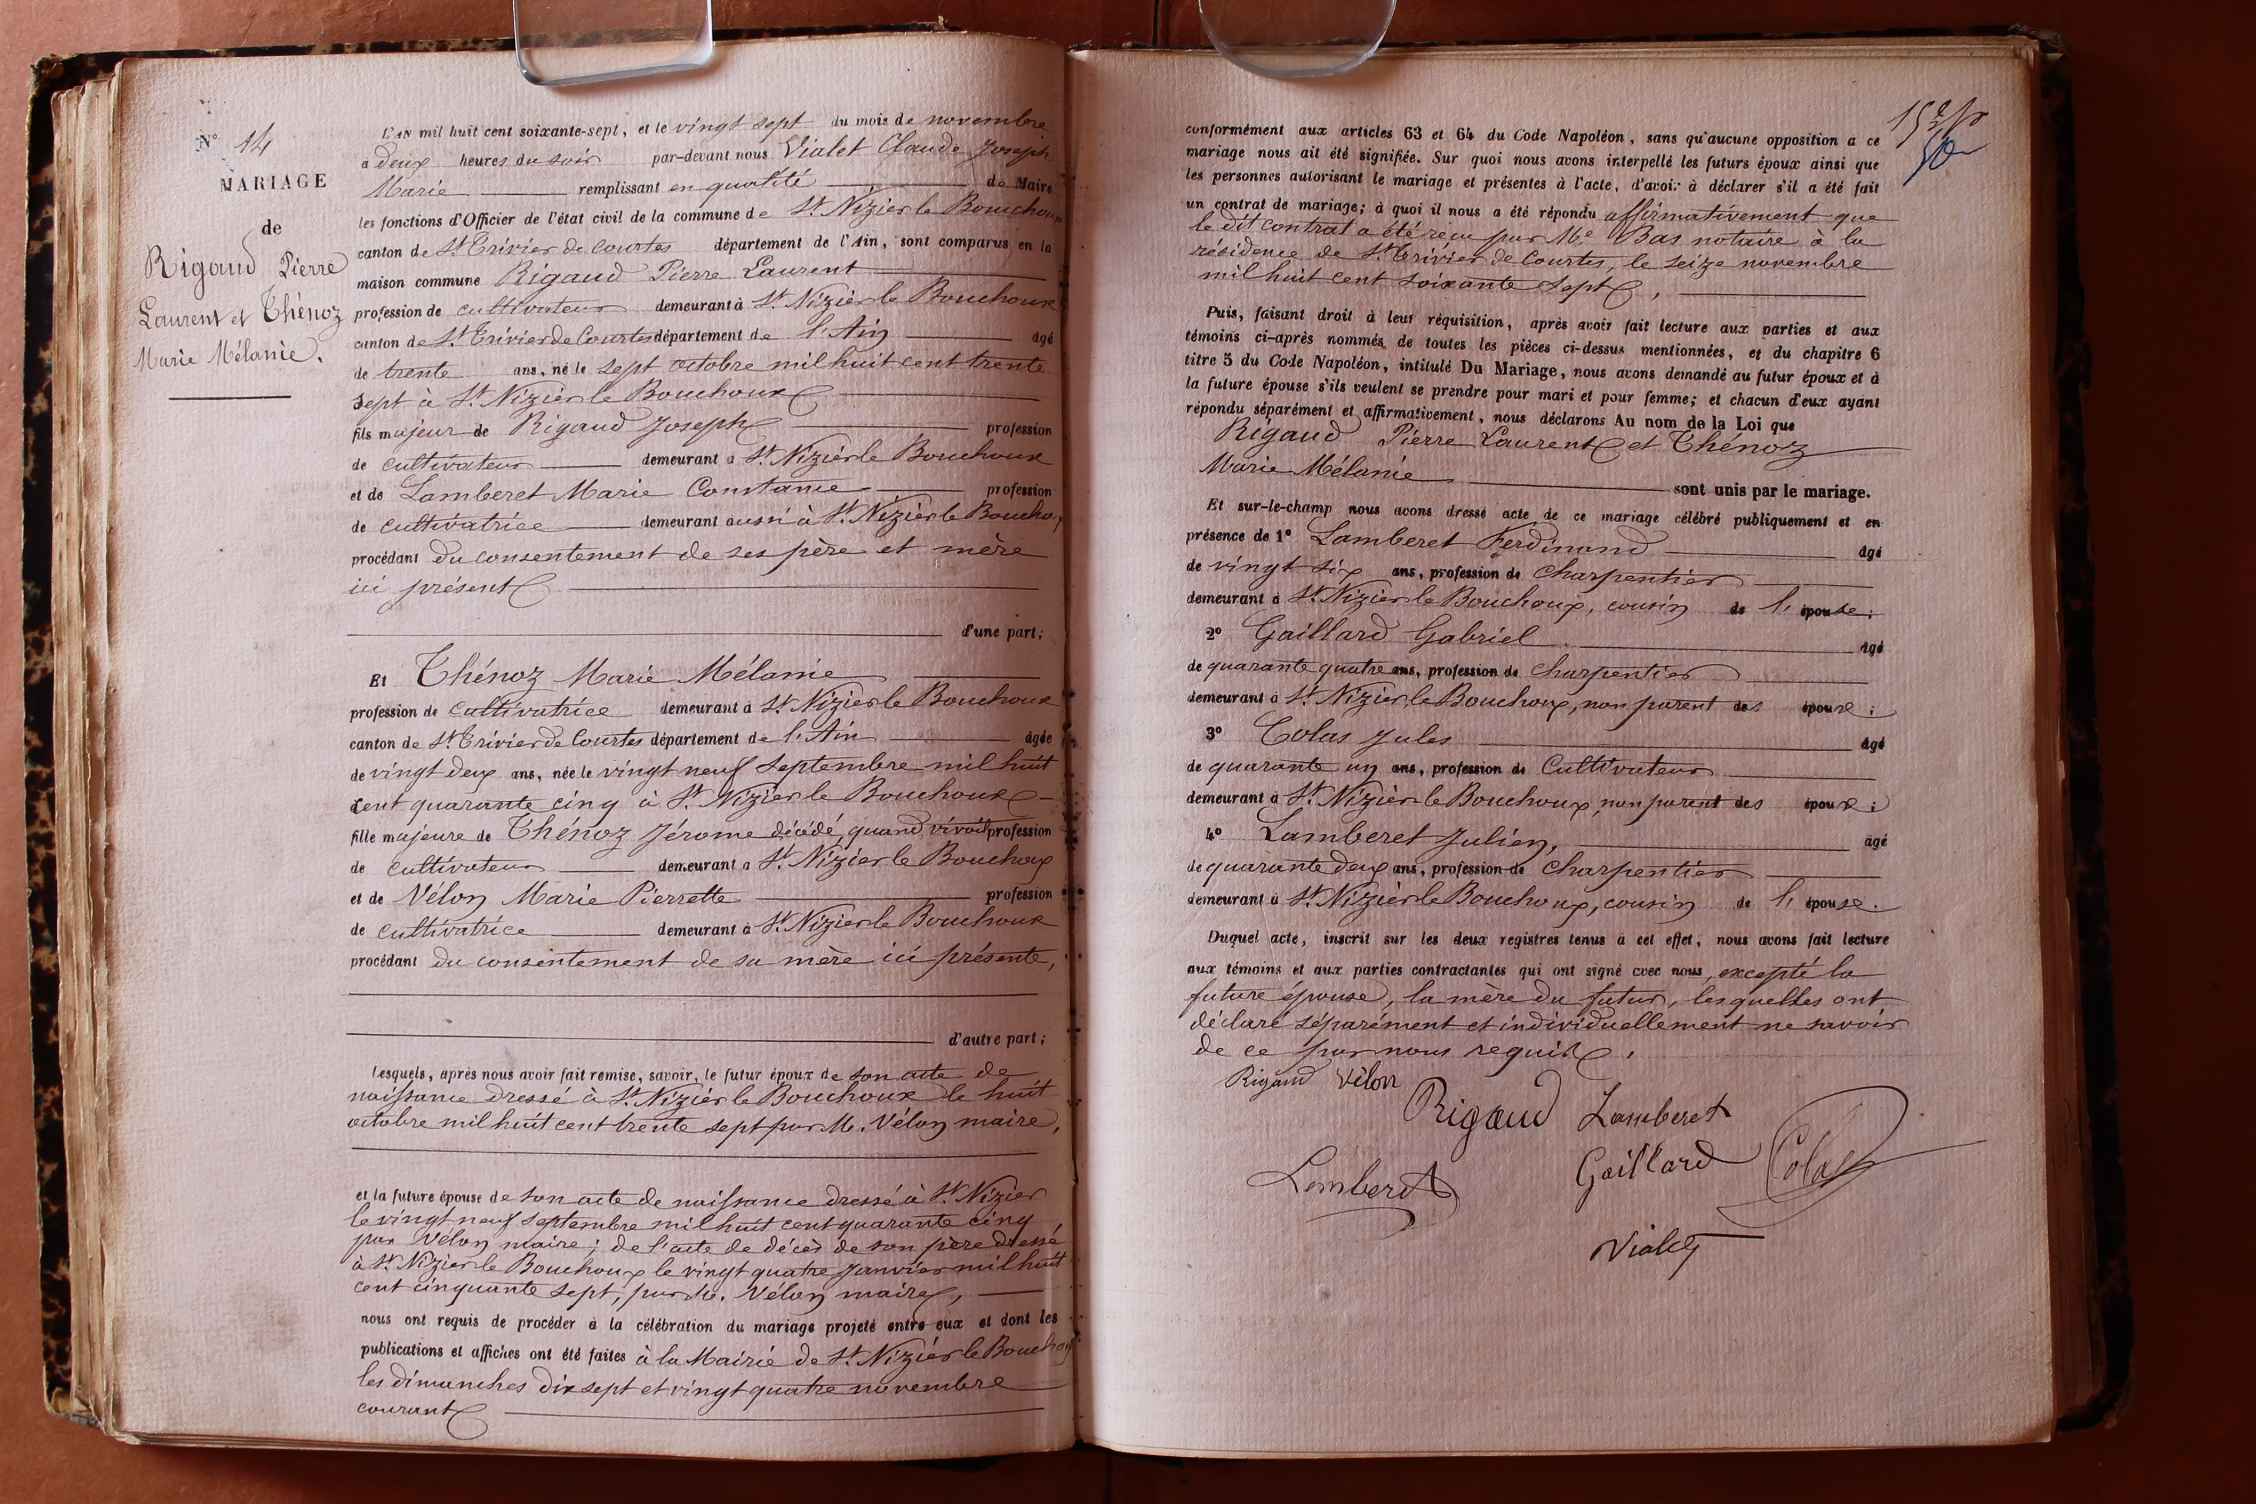 N° 14
MARIAGE
de
Rigaud Pierre
Laurent et Thénoz
Marie Mélanie.
L'AN mil huit cent soixante-sept, et le vingt sept du mois de novembre
a deux heures du soir par-devant nous Vialet Claude Joseph
Marie remplissant en qualité de Maire
les fonctions d'Officier de l'état civil de la commune de St Nizier le Bouchoux
canton de St Trivier de Courtes département de l'Ain, sont comparus en la
maison commune Rigaud Pierre Laurent
profession de cultivateur demeurant à St Nizier le Bouchoux
canton de St Trivier de Courtes département de l'Ain âgé
de trente ans, né le sept octobre mil huit cent trente
sept à St Nizier le Bouchoux
fils majeur de Rigaud Joseph profession
de cultivateur demeurant à St Nizier le Bouchoux
et de Lamberet Marie Constance profession
de cultivatrice demeurant aussi à St Nizier le Boucho
procédant du consentement de ses père et mère
ici présent
d'une part;
Et Thénoz Marie Mélanie
profession de cultivatrice demeurant à St Nizier le Bouchoux
canton de St Trivier de Courtes département de l'Ain âgée
de vingt deux ans, née le vingt neuf septembre mil huit
cent quarante cinq à St Nizier le Bouchoux
fille majeure de Thénoz Jérome décédé, quand vivait profession
de cultivateur demeurant a St Nizier le Bouchoux
et de Vélon Marie Pierrette profession
de cultivatrice demeurant à St Nizier le Bouchoux
procédant du consentement de sa mère ici présente,
d'autre part;
Lesquels, après nous avoir fait remise, savoir, le futur époux de son acte de
naissance dressé à St Nizier le Bouchoux le huit
octobre mil huit cent trente sept par M. Vélon maire,
et la future épouse de son acte de naissance dressé à St Nizier
le vingt neuf septembre mil huit cent quarante cinq
par Vélon maire; de l'acte de décès de son père dressé
à St Nizier le Bouchoux le vingt quatre janvier mil huit
cent cinquante sept, par Vélon maire,
nous ont requis de procéder à la célébration du mariage projeté entre eux et dont les
publications et affiches ont été faites à la Mairie de St Nizier le Bouchoux
les dimanches dix sept et vingt quatre novembre
courant
conformément aux articles 63 et 64 du Code Napoléon, sans qu'aucune opposition a ce
mariage nous ait été signifiée. Sur quoi nous avons interpellé les futurs époux ainsi que
les personnes autorisant le mariage et présentes à l'acte, d'avoir à déclarer s'il a été fait
un contrat de mariage; à quoi il nous a été répondu affirmativement que
le dit contrat a été reçu par Me Bas notaire à la
résidence de St Trivier de Courtes, le seize novembre
mil huit cent soixante sept,
Puis, faisant droit à leur réquisition, après avoir fait lecture aux parties et aux
témoins ci-après nommés, de toutes les pièces ci-dessus mentionnées, et du chapitre 6
titre 5 du Code Napoléon, intitulé Du Mariage, nous avons demandé au futur époux et à
la future épouse s'ils veulent se prendre pour mari et pour femme; et chacun d'eux ayant
répondu séparément et affirmativement, nous déclarons Au nom de la Loi que
Rigaud Pierre Laurent et Thénoz
Marie Mélanie sont unis par le mariage.
Et sur-le-champ nous avons dressé acte de ce mariage célébré publiquement et en
présence de 1° Lamberet Ferdinand âgé
de vingt six ans, profession de charpentier
demeurant à St Nizier le Bouchoux, cousin de l'épouse;
2° Gaillard Gabriel âgé
de quarante quatre ans, profession de charpentier
demeurant à St Nizier le Bouchoux, non parent des époux;
3° Colas Jules âgé
de quarante un ans, profession de Cultivateur
demeurant à St Nizier le Bouchoux, non parent des époux;
4° Lamberet Julien, âgé
de quarante deux ans, profession de charpentier
demeurant à St Nizier le Bouchoux, cousin de l'épouse.
Duquel acte, inscrit sur les deux registres tenus à cet effet, nous avons fait lecture
aux témoins et aux parties contractantes qui ont signé avec nous, excepté la
future épouse, la mère du futur, lesquelles ont
déclaré séparément et individuellement ne savoir
de ce par nous requis.
Rigaud Vélon
Rigaud Lamberet
Lamberet Gaillard Colas
Vialet